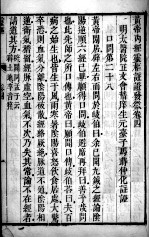 黃帝內經靈樞註證發微卷四
口問第二十八
黃帝閒居辟左右而問於岐伯曰余已聞九鍼之經論陰
陽逆順六經已畢願得口問岐伯避席再拜曰善乎哉問
也此先師之所口傳也黃帝曰願聞口傳岐伯答曰夫百
病之始生也皆生於風雨寒暑陰陽喜怒飲食居處大驚
卒恐則血氣分離陰陽破敗經絡厥絕脈道不通陰陽相
逆衛氣稽留經脈虛空血氣不次乃失其常論不在經者
請道其方